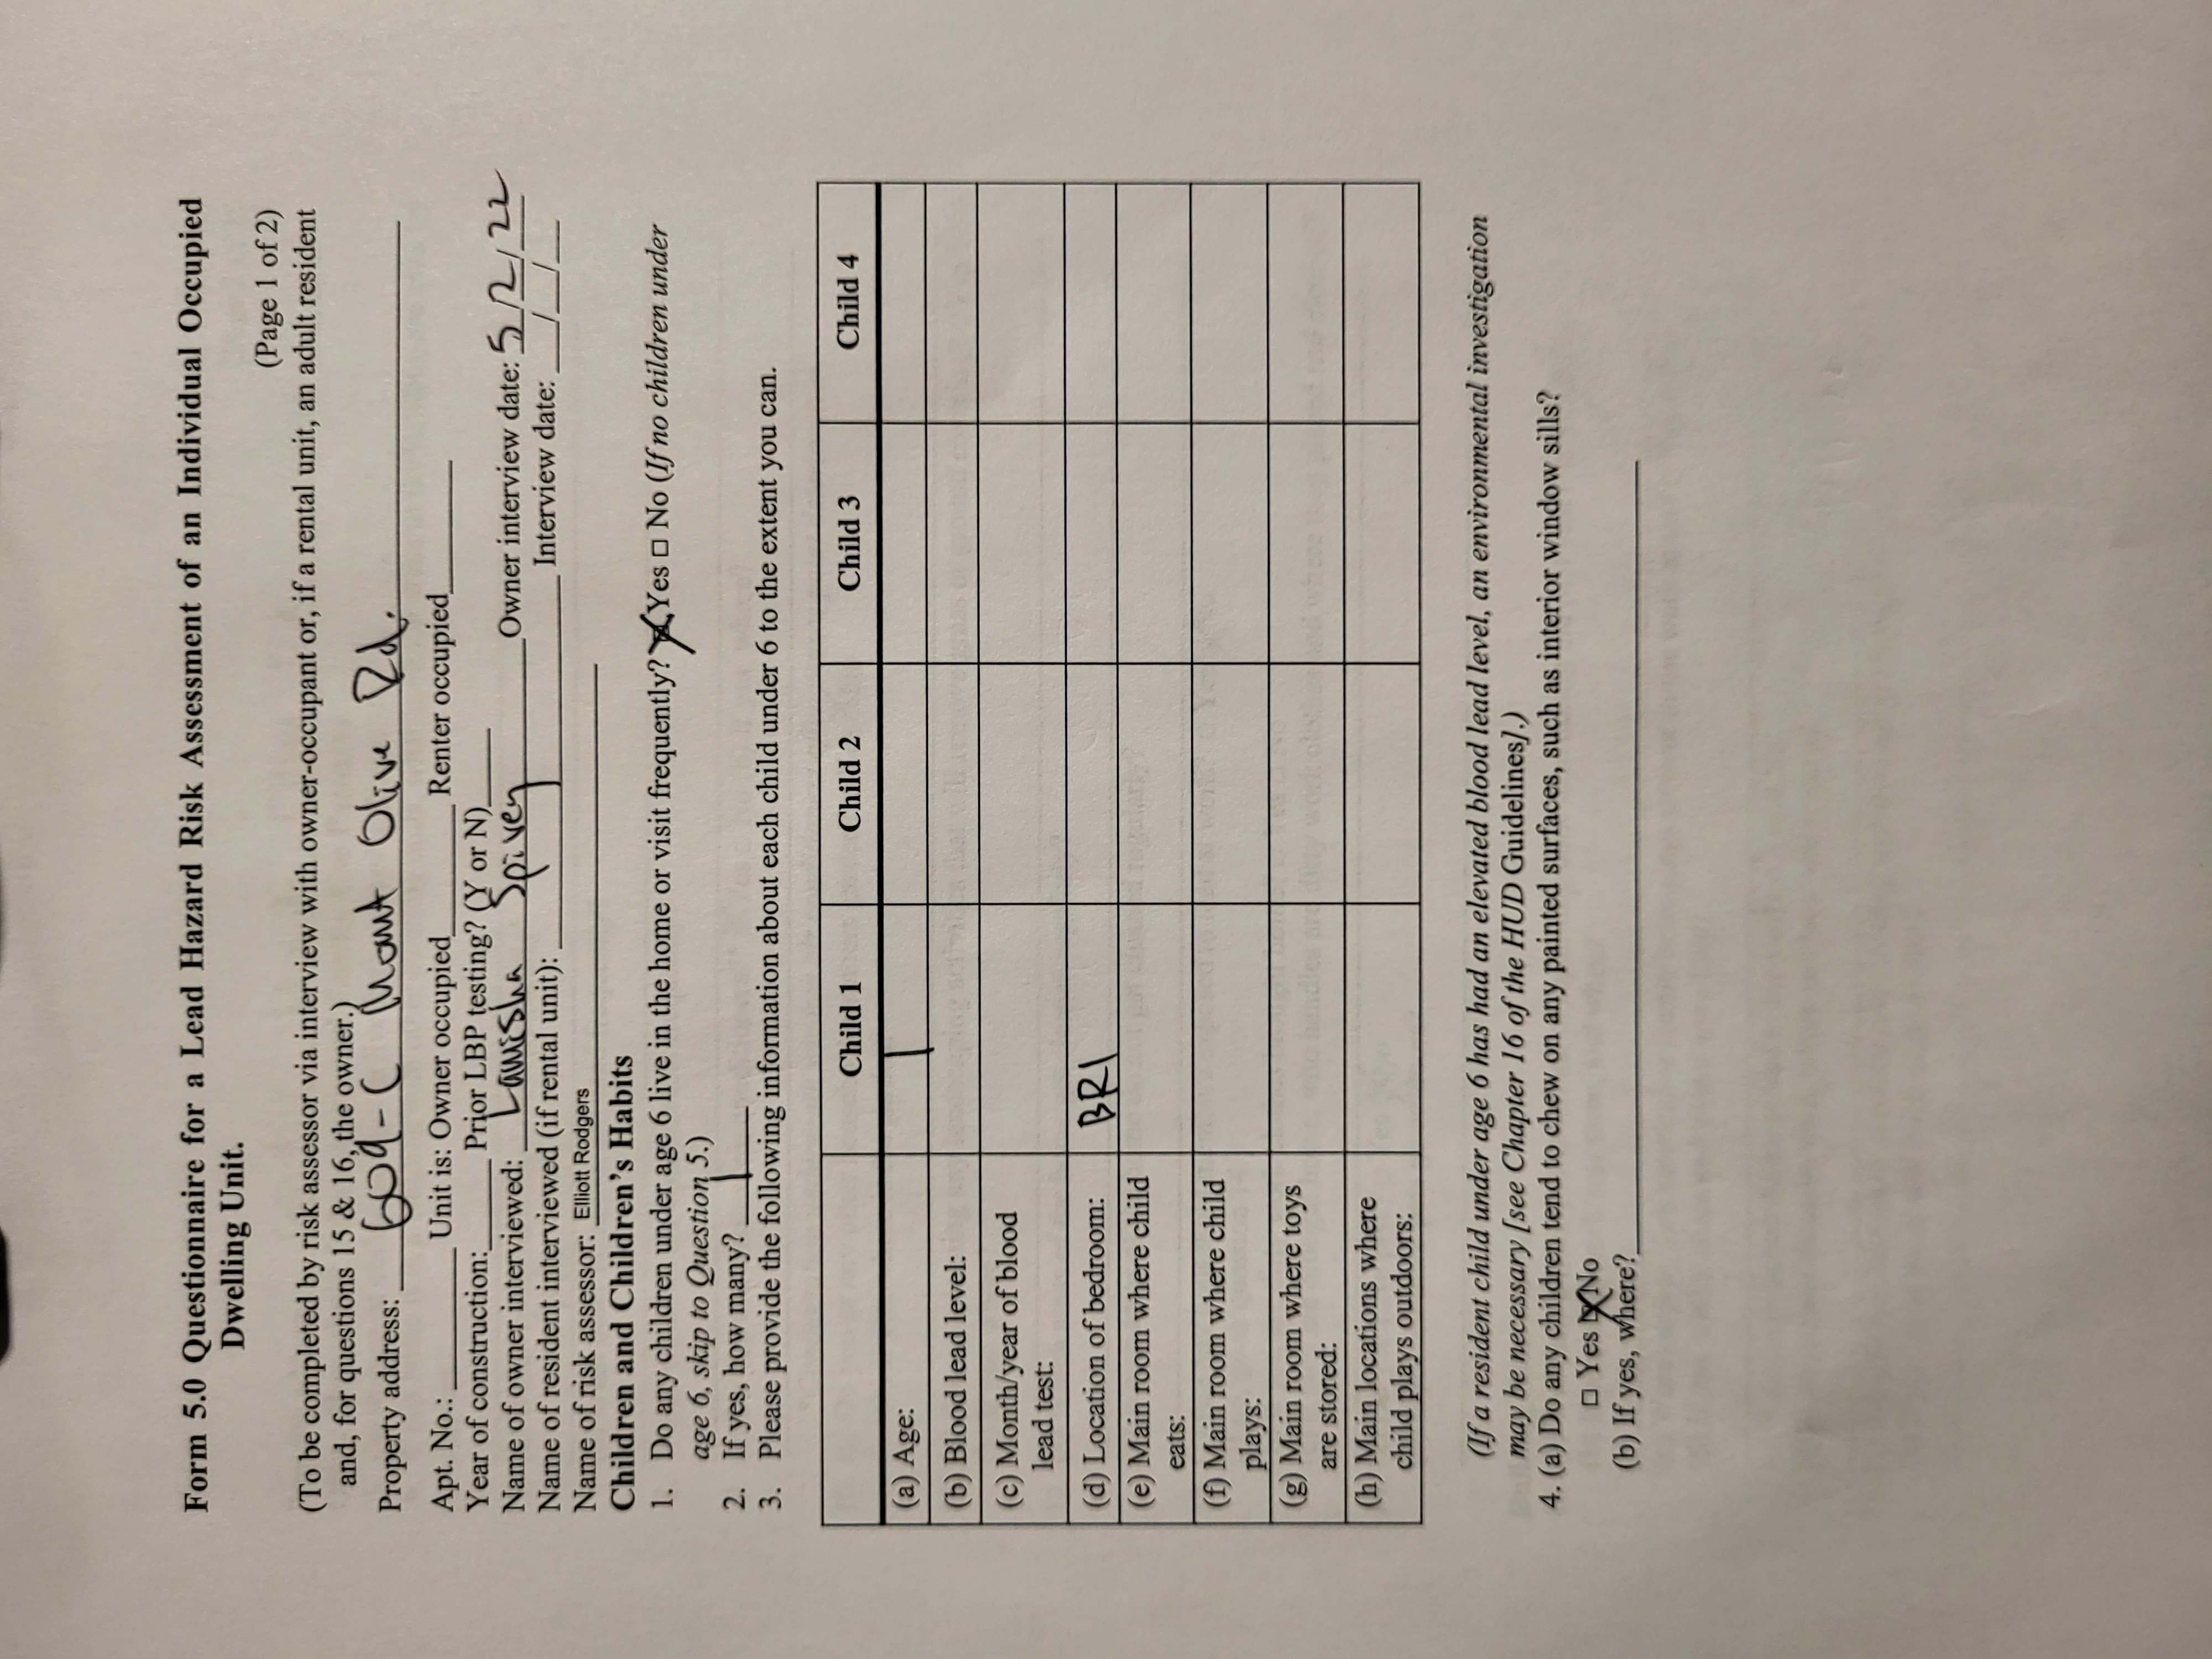 Form 5.0 Questionnaire for a Lead Hazard Risk Assessment of an Individual Occupied
Dwelling Unit.
(Page 1 of 2)
(To be completed by risk assessor via interview with owner-occupant or, if a rental unit, an adult resident
and, for questions 15 & 16, the owner.)
Property address: 609-C Mount Olive Rd.
Apt. No.: ______ Unit is: Owner occupied ______ Renter occupied ______
Year of construction: ______ Prior LBP testing? (Y or N) ______
Name of owner interviewed: Lamisha Spivey Owner interview date: 5/2/22
Name of resident interviewed (if rental unit): ______ Interview date: __/__/__
Name of risk assessor: Elliott Rodgers
Children and Children's Habits
1. Do any children under age 6 live in the home or visit frequently? ☒ Yes □ No (If no children under
age 6, skip to Question 5.)
2. If yes, how many? 1
3. Please provide the following information about each child under 6 to the extent you can.
Child 1 Child 2 Child 3 Child 4
(a) Age: 1
(b) Blood lead level:
(c) Month/year of blood
lead test:
(d) Location of bedroom: BR1
(e) Main room where child
eats:
(f) Main room where child
plays:
(g) Main room where toys
are stored:
(h) Main locations where
child plays outdoors:
(If a resident child under age 6 has had an elevated blood lead level, an environmental investigation
may be necessary [see Chapter 16 of the HUD Guidelines].)
4. (a) Do any children tend to chew on any painted surfaces, such as interior window sills?
□ Yes ☒ No
(b) If yes, where? ______